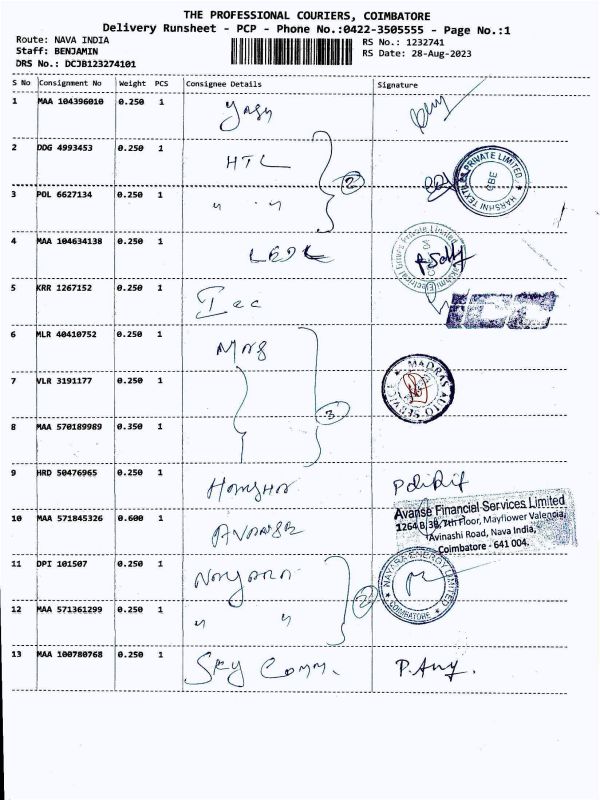 THE PROFESSIONAL COURIERS, COIMBATORE
Delivery Runsheet - PCP - Phone No.:0422-3505555 - Page No.:1
Route: NAVA INDIA
RS No.: 1232741
Staff: BENJAMIN
RS Date: 28-Aug-2023
DRS No.: DCJB123274101
S No Consignment No Weight PCS Consignee Details Signature
1 MAA 104396010 0.250 1
2 DDG 4993453 0.250 1 HTL
HARSHNI TEXTILES PRIVATE LIMITED
CBE
2
3 POL 6627134 0.250 1 " "
4 MAA 104634138 0.250 1
Lakshmi Electrical Drives Private Limited
5 KRR 1267152 0.250 1
6 MLR 40410752 0.250 1 MAS
7 VLR 3191177 0.250 1
MADRAS AUTO SERVICE
3
8 MAA 570189989 0.350 1
9 HRD 50476965 0.250 1
10 MAA 571845326 0.600 1 Avanse
Avanse Financial Services Limited
1264 B, 3B, 7th Floor, Mayflower Valencia,
Avinashi Road, Nava India,
Coimbatore - 641 004.
11 DPI 101507 0.250 1 Nayara
NAYARA ENERGY LIMITED
COIMBATORE
2
12 MAA 571361299 0.250 1 " "
13 MAA 100780768 0.250 1 Sky Comm. P. Any.